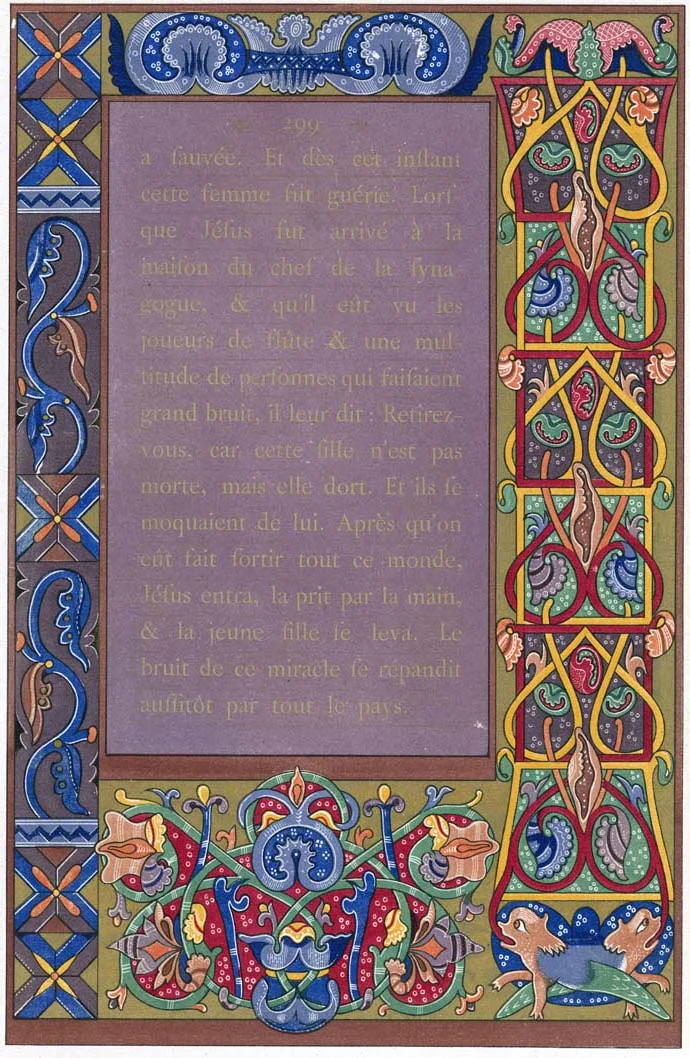 299
a ſauvée. Et dès cet inſtant
cette femme fut guérie. Lorſ-
que Jéſus fut arrivé à la
maiſon du chef de la ſyna-
gogue, & qu'il eût vu les
joueurs de flûte & une mul-
titude de perſonnes qui faiſaient
grand bruit, il leur dit : Retirez-
vous, car cette fille n'est pas
morte, mais elle dort. Et ils ſe
moquaient de lui. Après qu'on
eût fait ſortir tout ce monde,
Jéſus entra, la prit par la main,
& la jeune fille ſe leva. Le
bruit de ce miracle ſe répandit
auſſitôt par tout le pays.